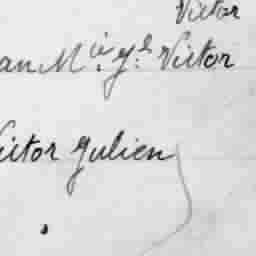 Victor
an M ie. y. l Victor
Victor Julien